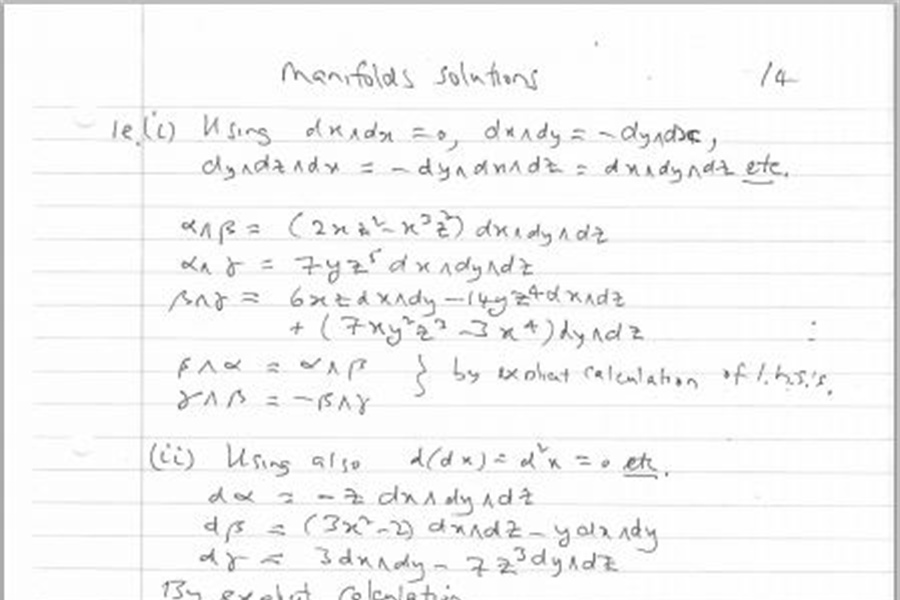 Manifolds solutions /4
1e.(i) Using dx∧dx = 0, dx∧dy = -dy∧dx,
dy∧dz∧dx = -dy∧dx∧dz = dx∧dy∧dz etc.
α∧β = (2xz² - x³z²) dx∧dy∧dz
α∧γ = 7yz⁵ dx∧dy∧dz
β∧γ = 6xz dx∧dy - 14yz⁴ dx∧dz
+ (7xy²z³ - 3x⁴) dy∧dz
β∧α = α∧β } by explicit calculation of l.h.s.'s.
γ∧β = -β∧γ
(ii) Using also d(dx) = d²x = 0 etc.
dα = -z dx∧dy∧dz
dβ = (3x²-2) dx∧dz - y dx∧dy
dγ = 3dx∧dy - 7z³dy∧dz
By explicit calculation